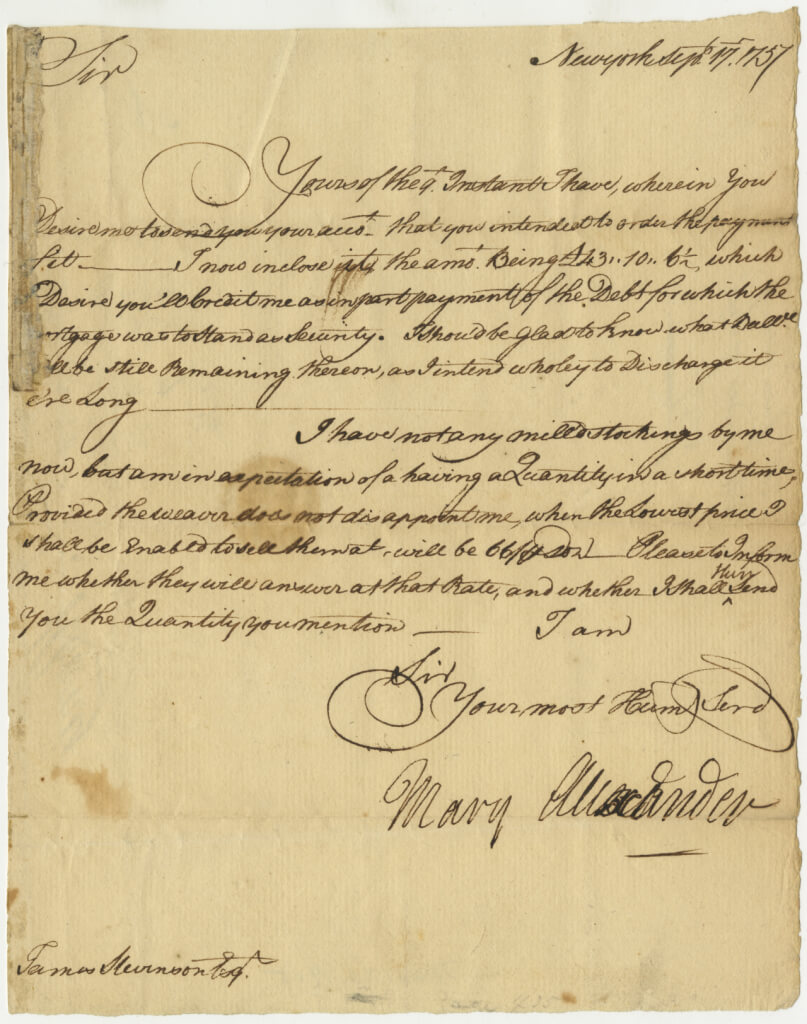 Sir
Newyork Sept. 17. 1757
Yours of the 9t. Instant I have, wherein You
Desire me to send you your acco.t that you intended to order the payment
of it. I now inclose it, the amo.t Being £43,, 10,, 6½, which
Desire you'll Credit me as in part payment of the Debt for which the
ortgage was to stand as Security. I shou'd be glad to know what
ill be still Remaining thereon, as I intend wholey to Discharge it
e're Long
I have not any mill'd stockings by me
now, but am in expectation of a having a Quantity in a short time,
Provided the weaver does not disappoint me, when the Lowest price I
shall be Enabled to sell them at will be 66/ Please to Inform
me whether they will answer at that Rate, and whether I shall they Send
You the Quantity you mention I am
Sir
Your most Hum. Serv.
Mary Alexander
James Stevenson Esq.r